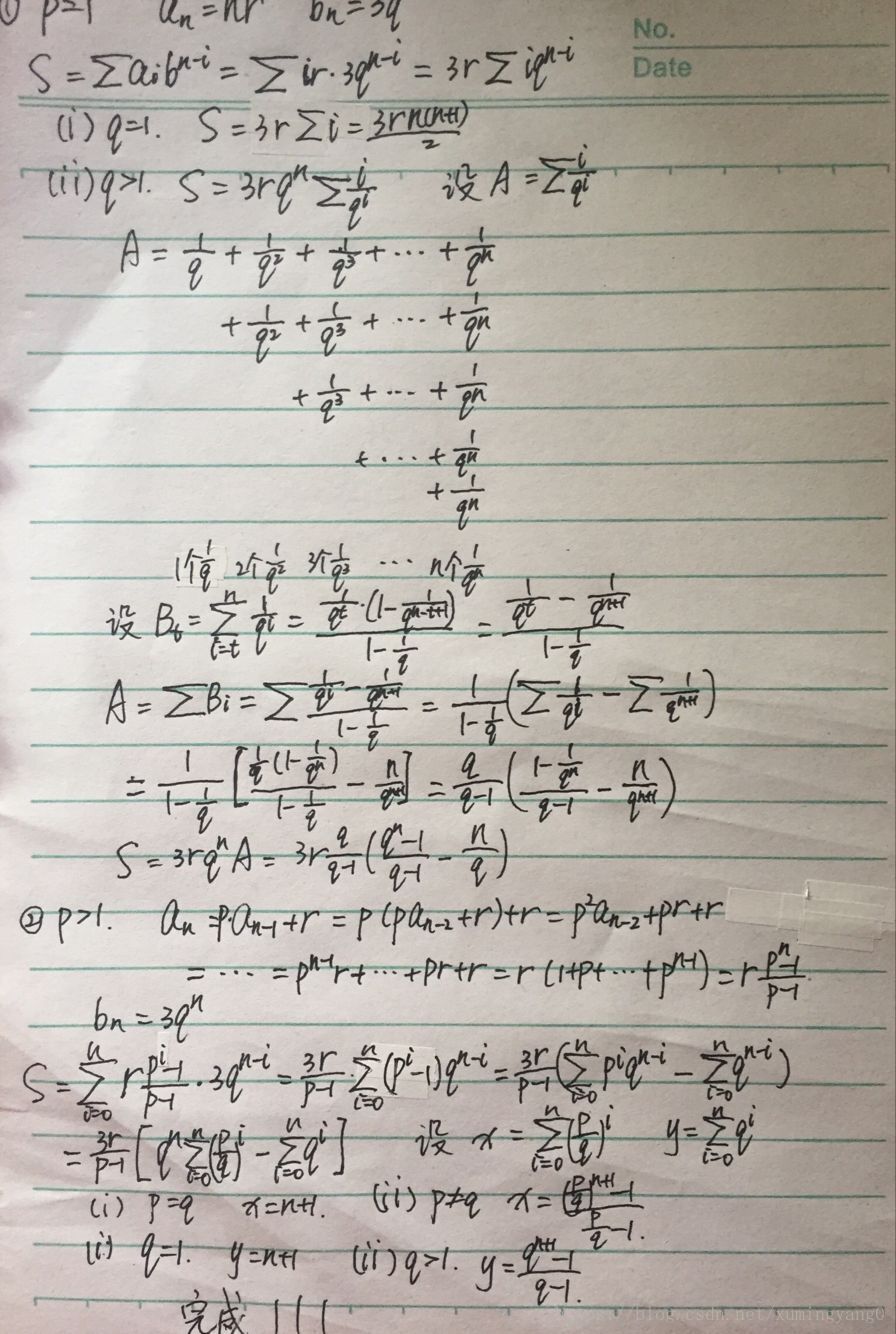 ① p=1 aₙ=nr bₙ=3q
No.
Date
S=∑aᵢbⁿ⁻ⁱ=∑ir·3qⁿ⁻ⁱ=3r∑iqⁿ⁻ⁱ
(i) q=1. S=3r∑i=3rn(n+1)/2
(ii) q>1. S=3rqⁿ∑i/qⁱ 设 A=∑i/qⁱ
A=1/q+1/q²+1/q³+⋯+1/qⁿ
+1/q²+1/q³+⋯+1/qⁿ
+1/q³+⋯+1/qⁿ
+⋯+1/qⁿ
+1/qⁿ
1个1/q 2个1/q² 3个1/q³ ⋯ n个1/qⁿ
设 Bₜ=∑_{i=t}^{n} 1/qⁱ=(1/qᵗ·(1-1/qⁿ⁻ᵗ⁺¹))/(1-1/q)=(1/qᵗ-1/qⁿ⁺¹)/(1-1/q)
A=∑Bᵢ=∑(1/qⁱ-1/qⁿ⁺¹)/(1-1/q)=1/(1-1/q)(∑1/qⁱ-∑1/qⁿ⁺¹)
=1/(1-1/q)[(1/q(1-1/qⁿ))/(1-1/q)-n/qⁿ⁺¹]=q/(q-1)((1-1/qⁿ)/(q-1)-n/qⁿ⁺¹)
S=3rqⁿA=3r q/(q-1)((qⁿ-1)/(q-1)-n/q)
② p>1. aₙ=p·aₙ₋₁+r=p(paₙ₋₂+r)+r=p²aₙ₋₂+pr+r
=⋯=pⁿ⁻¹r+⋯+pr+r=r(1+p+⋯+pⁿ⁻¹)=r(pⁿ-1)/(p-1)
bₙ=3qⁿ
S=∑_{i=0}^{n} r(pⁱ-1)/(p-1)·3qⁿ⁻ⁱ=3r/(p-1)∑_{i=0}^{n}(pⁱ-1)qⁿ⁻ⁱ=3r/(p-1)(∑_{i=0}^{n}pⁱqⁿ⁻ⁱ-∑_{i=0}^{n}qⁿ⁻ⁱ)
=3r/(p-1)[qⁿ∑_{i=0}^{n}(p/q)ⁱ-∑_{i=0}^{n}qⁱ] 设 x=∑_{i=0}^{n}(p/q)ⁱ y=∑_{i=0}^{n}qⁱ
(i) p=q x=n+1. (ii) p≠q x=((p/q)ⁿ⁺¹-1)/(p/q-1).
(i) q=1. y=n+1 (ii) q>1. y=(qⁿ⁺¹-1)/(q-1).
完成!!!
https://blog.csdn.net/xumingyang0